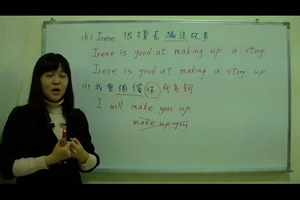 (h) Irene 很擅長編造故事
Irene is good at making up a story.
Irene is good at making a story up.
(i) 我會補償你 代名詞
I will make you up
make up you